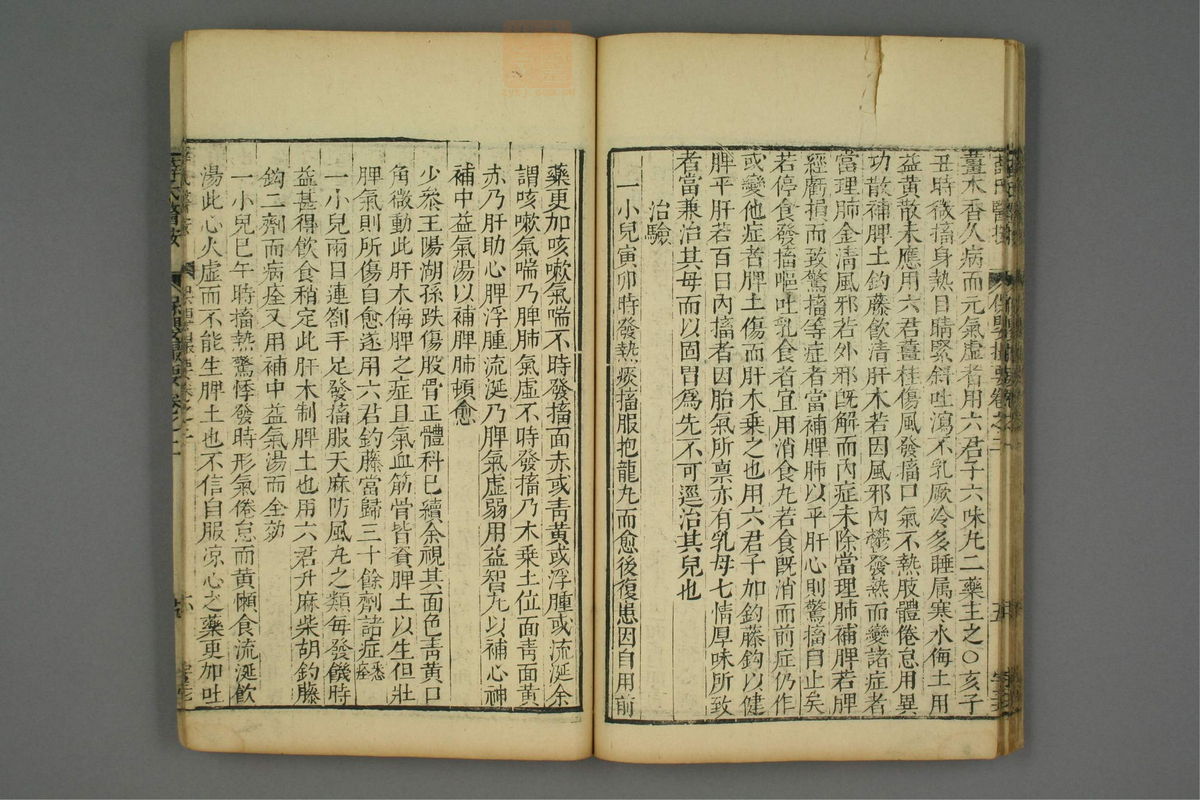 薑木香久病而元氣虛者用六君子六味丸二藥主之○亥子
丑時微搐身熱目睛緊斜吐瀉不乳厥冷多睡属寒水侮土用
益黃散未應用六君薑桂傷風發搐口氣不熱肢體倦怠用異
功散補脾土釣藤飲清肝木若因風邪內鬱發熱而變諸症者
當理肺金清風邪若外邪既解而內症未除當理肺補脾若脾
經虧損而致驚搐等症者當補脾肺以平肝心則驚搐自止矣
若停食發搐嘔吐乳食者宜用消食丸若食既消而前症仍作
或變他症者脾土傷而肝木乘之也用六君子加釣藤鈎以健
脾平肝若百日內搐者因胎氣所禀亦有乳母七情厚味所致
者當兼治其母而以固胃為先不可逕治其兒也
治驗
一小兒寅卯時發熱痰搐服抱龍丸而愈後復患因自用前
藥更加咳嗽氣喘不時發搐面赤或青黃或浮腫或流涎余
謂咳嗽氣喘乃脾肺氣虛不時發搐乃木乘土位面青面黃
赤乃肝助心脾浮腫流涎乃脾氣虛弱用益智丸以補心神
補中益氣湯以補脾肺頓愈
少叅王陽湖孫跌傷股骨正體科已續余視其面色青黃口
角微動此肝木侮脾之症且氣血筋骨皆資脾土以生但壯
脾氣則所傷自愈遂用六君釣藤當歸三十餘劑諸症悉痊
一小兒兩日連劄手足發搐服天麻防風丸之類毎發饑時
益甚得飲食稍定此肝木制脾土也用六君升麻柴胡釣藤
鈎二劑而病痊又用補中益氣湯而全効
一小兒巳午時搐熱驚悸發時形氣倦怠而黃懶食流涎飲
湯此心火虛而不能生脾土也不信自服凉心之藥更加吐